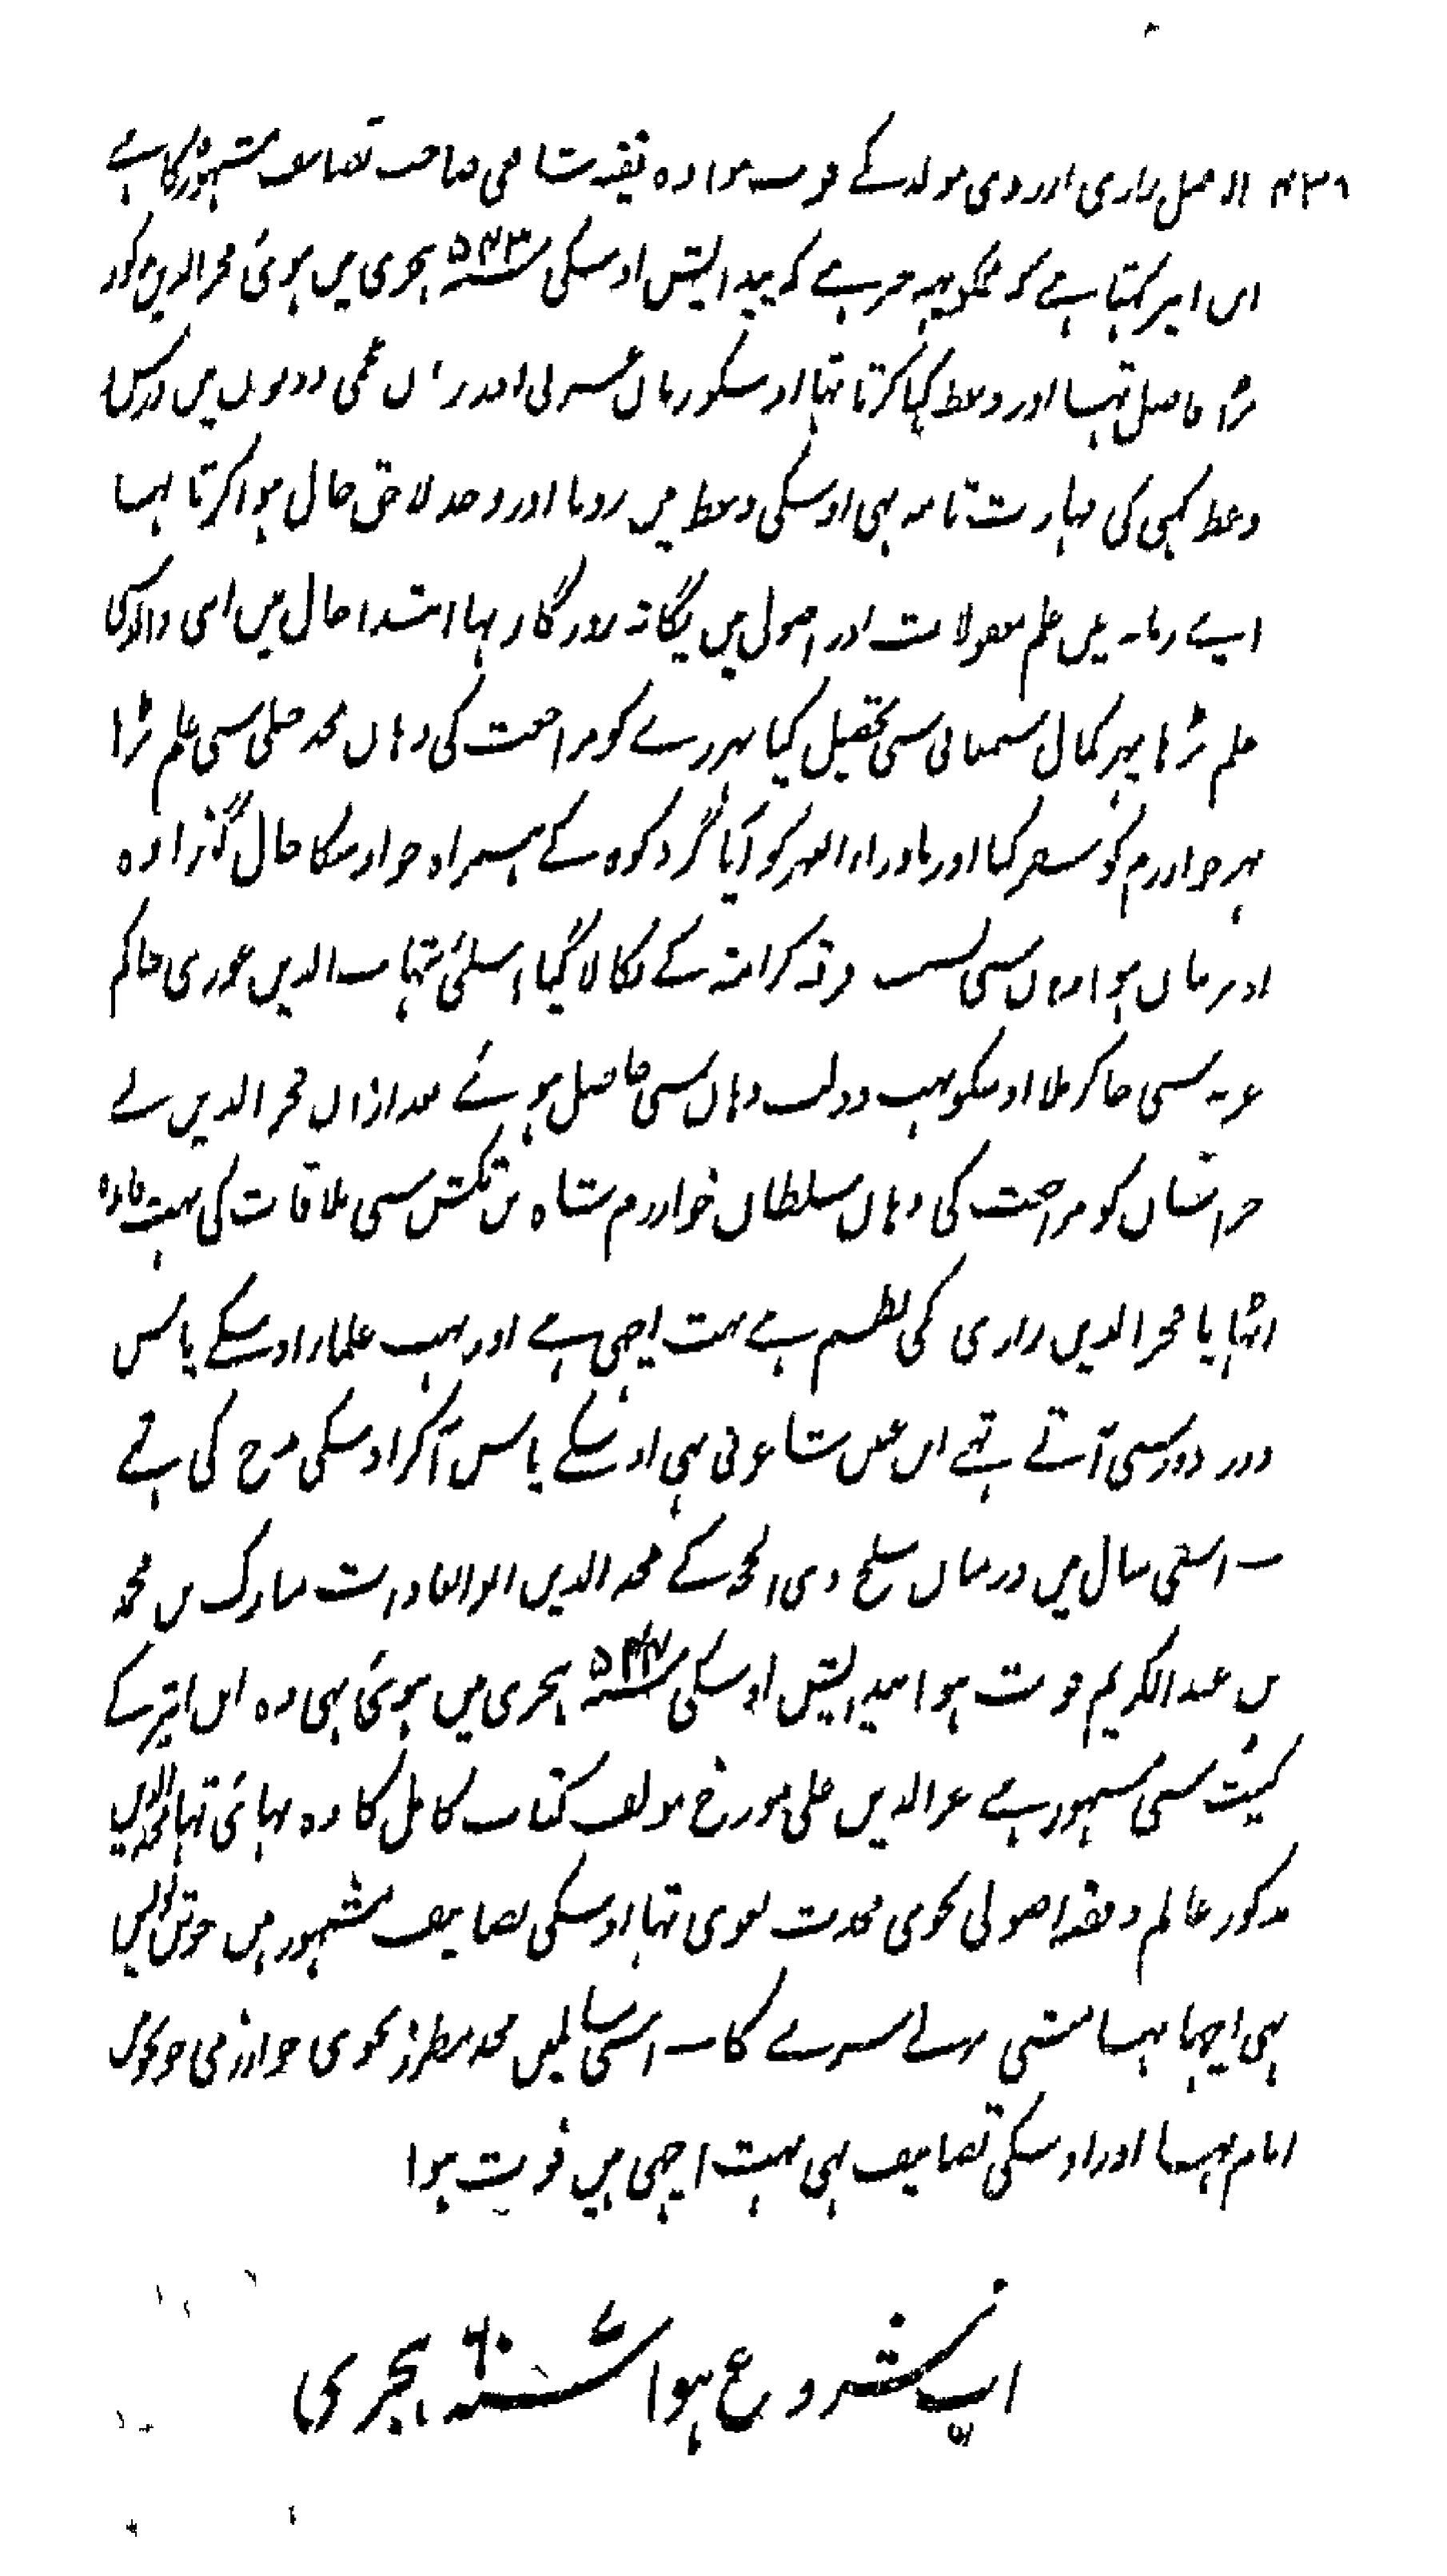 ۴۳۸ الاصل رازی اور ری مولد کے فوت ہوا وہ فقیہ شافعی صاحب تصانیف مشہورہ کا ہے
ابن اثیر کہتا ہے کہ مجکو یہہ خبر ہے کہ پیدایش اوسکی ۵۴۳ ہجری میں ہوئی فخر الدین مذکور
بڑا فاضل تہا اور وعظ کہا کرتا تہا اوسکو زبان عربی اور زبان عجمی دونوں میں درس
وعظ کہنی کی مہارت تامہ تہی اوسکی وعظ میں رونا اور وجد لاحق حال ہوا کرتا تہا
اپنے زمانہ میں علم معقولات اور اصول میں یگانہ روزگار تہا ابتدا حال میں اپنی والد سی
علم پڑہا پہر کمال سمنانی سی تحصیل کیا پہر رے کو مراجعت کی وہاں مجد جیلی سی علم پڑا
پہر خوارزم کو سفر کیا اور ماوراء النہر کو آیا گرد کوہ کے ہمراہ جو اوسکا حال گذرا وہ
اور بیان ہوا وہاں سی بسبب فرقہ کرامیہ کے نکالا گیا اسلئی شہاب الدین غوری حاکم
غزنہ سی جا کر ملا اوسکو بہت دولت وہاں سی حاصل ہوئے بعد ازاں فخر الدین نے
خراسان کو مراجعت کی وہاں سلطان خوارزم شاہ بن تکش سی ملاقات کی بہت فائدہ
اٹہایا فخر الدین رازی کی نظم ہے بہت اچہی ہے اور بہت علماء اوسکے پاس
دور دور سی آتے تہے ابن عنین شاعر نی بہی اوسکے پاس آکر اوسکی مدح کی ہے
ـ اسی سال میں درمیان سلخ ذی الحجہ کے مجد الدین ابو السعادات مبارک بن محمد
بن عبد الکریم فوت ہوا پیدایش اوسکی ۵۴۴ ہجری میں ہوئی تہی وہ ابن اثیر کے
کنیت سی مشہور ہے عز الدین علی مورخ مولف کتاب کامل کا وہ بہائی تہا مجد الدین
مذکور عالم و فقیہ اصولی نحوی محدث لغوی تہا اوسکی تصانیف مشہور ہیں خوش نویس
بہی اچہا تہا منشی پرلے سرے کا ـ اسی سالمیں مجد مطرزی نحوی خوارزمی جو نحو کا
امام تہا اور اوسکی تصانیف بہی بہت اچہی ہیں فوت ہوا
اب شروع ہوا سنہ ۶۰۷ ہجری